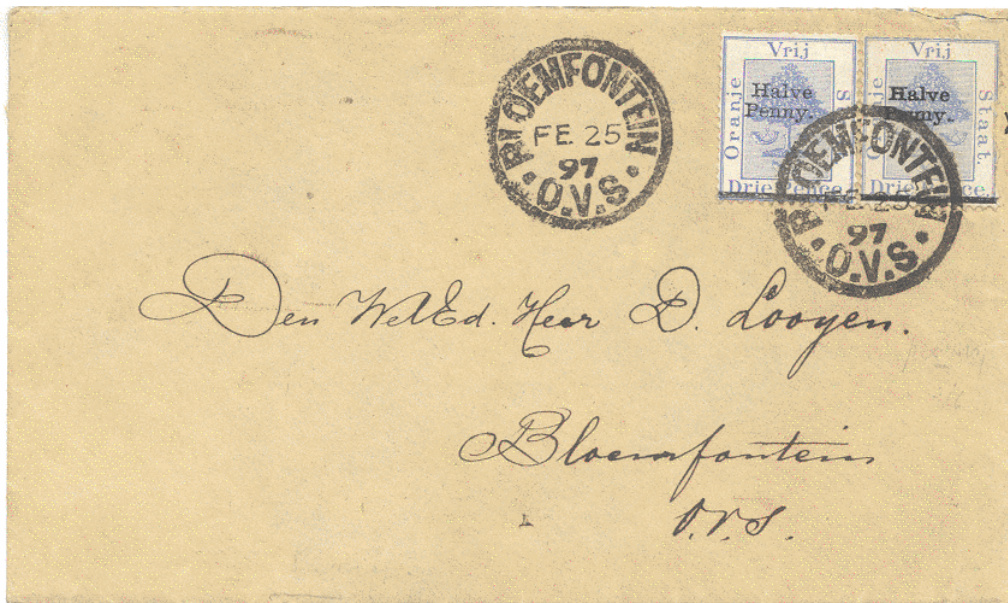 BLOEMFONTEIN
FE 25
97
O.V.S.
Vrij
Oranje
Staat.
Halve
Penny.
Drie Pence
Vrij
Oranje
Staat.
Halve
Penny.
Drie Pence
BLOEMFONTEIN
FE 25
97
O.V.S.
Den WelEd. Heer D. Looyen.
Bloemfontein
O.V.S.